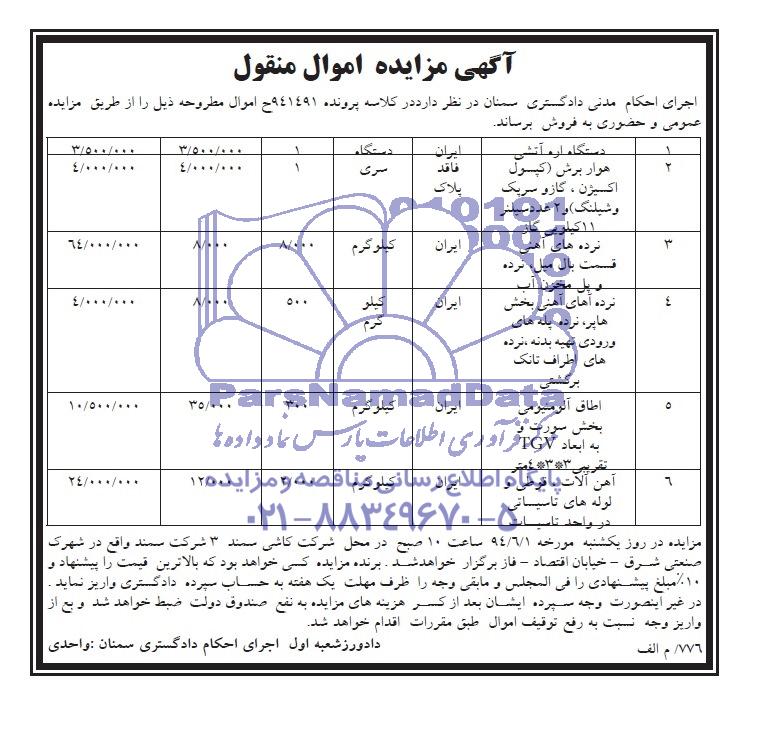 آگهی مزایده اموال منقول
اجرای احکام مدنی دادگستری سمنان در نظر دارددر کلاسه پرونده ۹٤۱٤۹۱ح اموال مطروحه ذیل را از طریق مزایده
عمومی و حضوری به فروش برساند.
۱ دستگاه اره آتشی ایران دستگاه ۱ ۳/۵۰۰/۰۰۰ ۳/۵۰۰/۰۰۰
۲ هوار برش (کپسول فاقد سری ۱ ٤/۰۰۰/۰۰۰ ٤/۰۰۰/۰۰۰
اکسیژن ، گازو سرپک پلاک
وشیلنگ)و۲عددسیلندر
۱۱کیلویی گاز
۳ نرده های آهنی ایران کیلوگرم ۸/۰۰۰ ۸/۰۰۰ ٦٤/۰۰۰/۰۰۰
قسمت بال میل، نرده
و پل مخزن آب
٤ نرده آهای آهنی بخش ایران کیلو ۵۰۰ ۸/۰۰۰ ٤/۰۰۰/۰۰۰
هاپر، نرده پله های گرم
ورودی تهیه بدنه ،نرده
های اطراف تانک
برگشتی
۵ اطاق آلومینیومی ایران کیلوگرم ۳۰۰ ۳۵/۰۰۰ ۱۰/۵۰۰/۰۰۰
بخش سورت و
به ابعاد TGV
تقریبی۳*۳*٤متر
٦ آهن آلات ایران کیلوگرم ۲/۰۰۰ ۱۲/۰۰۰ ۲٤/۰۰۰/۰۰۰
لوله های تاسیساتی
در واحد تاسیسات
مزایده در روز یکشنبه مورخه ۹٤/٦/۱ ساعت ۱۰ صبح در محل شرکت کاشی سمند ۳ شرکت سمند واقع در شهرک
صنعتی شرق – خیابان اقتصاد – فاز برگزار خواهدشد . برنده مزایده کسی خواهد بود که بالاترین قیمت را پیشنهاد و
۱۰٪مبلغ پیشنهادی را فی المجلس و مابقی وجه را ظرف مهلت یک هفته به حساب سپرده دادگستری واریز نماید .
در غیر اینصورت وجه سپرده ایشان بعد از کسر هزینه های مزایده به نفع صندوق دولت ضبط خواهد شد و بع از
واریز وجه نسبت به رفع توقیف اموال طبق مقررات اقدام خواهد شد.
۷۷٦/ م الف دادورزشعبه اول اجرای احکام دادگستری سمنان :واحدی
ParsNamadData
مرکز فرآوری اطلاعات پارس نماد داده ها
پایگاه اطلاع رسانی مناقصه و مزایده
۰۲۱-۸۸۳۴۹۶۷۰-۵